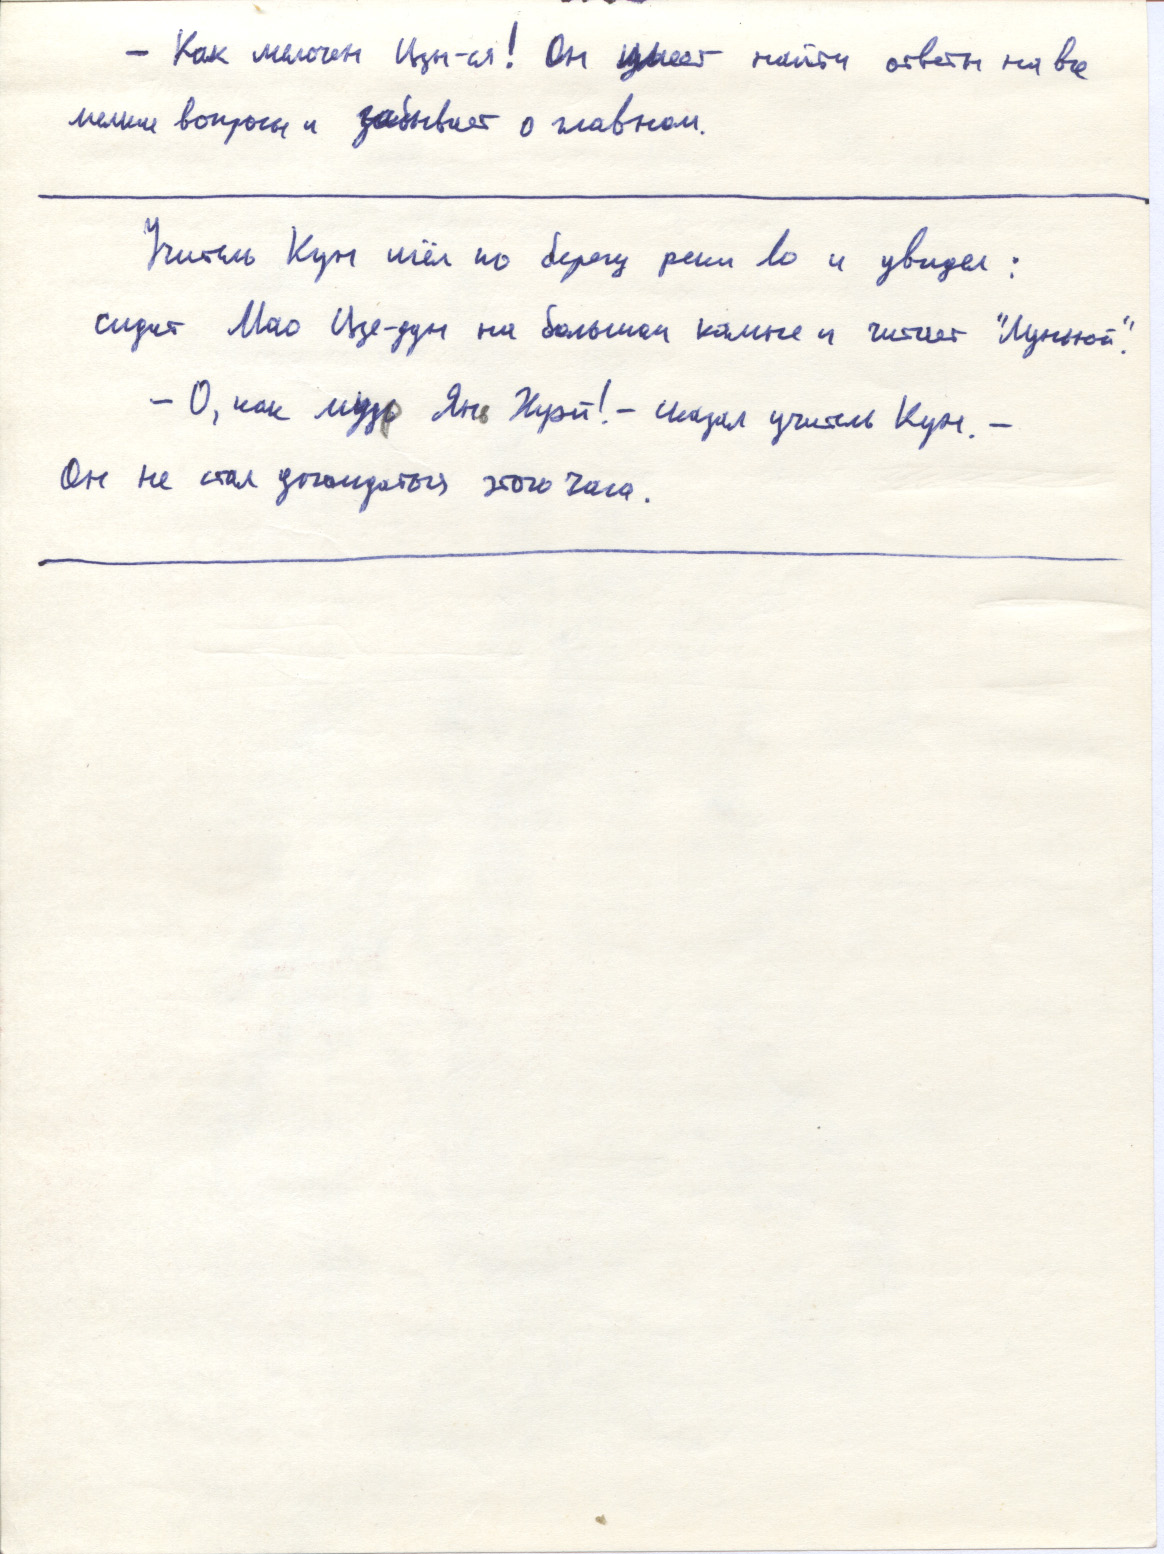 – Как мелочен Цзы-ся! Он умеет найти ответы на все
мелкие вопросы и забывает о главном.
Учитель Кун шёл по берегу реки Ло и увидел:
сидит Мао Цзе-дун на большом камне и читает "Луньюй".
– О, как мудр Янь Хуэй! – сказал учитель Кун. –
Он не стал дожидаться этого часа.